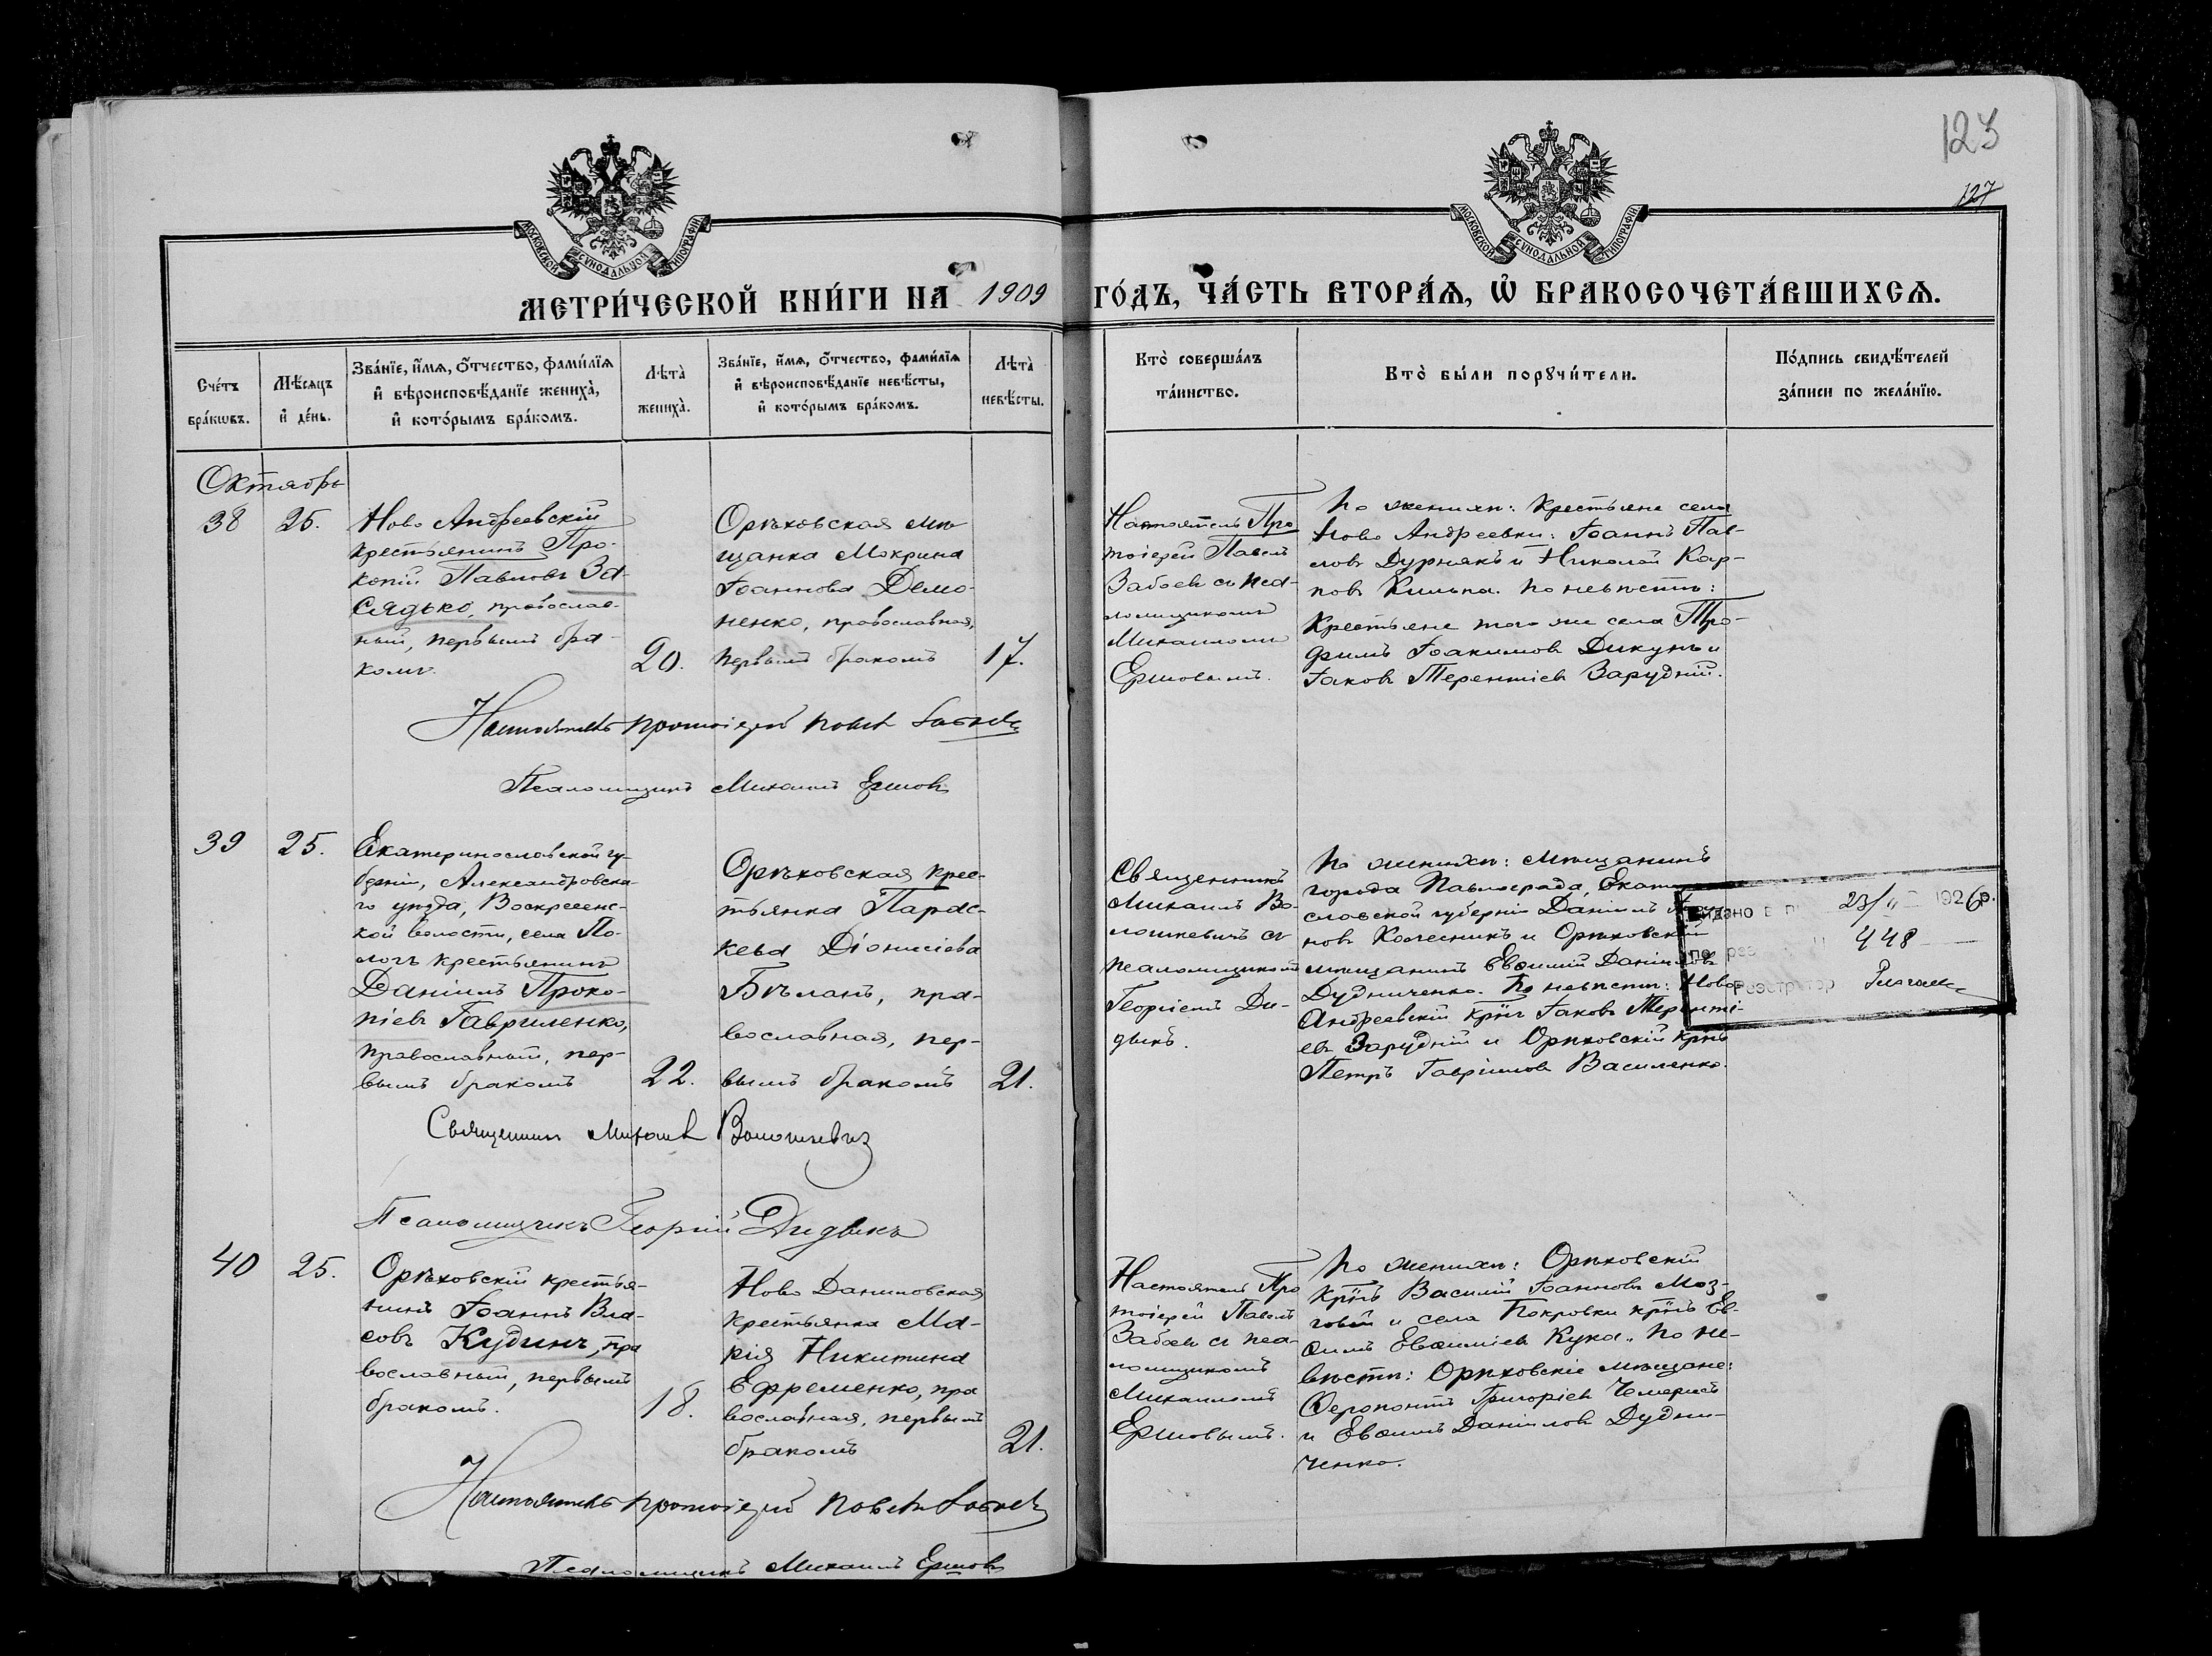 123
127
МОСКОВСКОЙ СУНОДАЛЬНОЙ ТИПОГРАФІИ
МОСКОВСКОЙ СУНОДАЛЬНОЙ ТИПОГРАФІИ
МЕТРИ́ЧЕСКОЙ КНИ́ГИ НА 1909 ГО́ДЪ, ЧА́СТЬ ВТОРА́Я, Ѡ БРАКОСОЧЕТА́ВШИХСЯ.
Сче́тъ
бра́кѡвъ.
Мѣ́сяцъ
и де́нь.
Зва́нїе, и҆́мя, ѻ҆́тчество, фами́лїя
и҆ вѣроисповѣ́данїе жениха̀,
и҆ кото́рымъ бра́комъ.
Лѣта̀
жениха̀.
Зва́нїе, и҆́мя, ѻ҆́тчество, фами́лїя
и҆ вѣроисповѣ́данїе невѣ́сты,
и҆ кото́рымъ бра́комъ.
Лѣта̀
невѣ́сты.
Кто̀ соверша́лъ
та́инство.
Кто̀ бы́ли порꙋчи́тели.
По́дпись свидѣ́телей
за́писи по жела́нїю.
Октябрь
38
25.
Ново Андреевскій
крестьянинъ Про-
копій Павловъ За-
сядько, православ-
ный, первымъ бра-
комъ.
20.
Орѣховская мѣ-
щанка Мокрина
Іоаннова Демо-
ненко, православная,
первымъ бракомъ
17.
Настоятель Про
тоіерей Павелъ
Забаевъ съ пса-
ломщикомъ
Михаиломъ
Ершовымъ.
По женихѣ: Крестьяне села
Ново Андреевки: Іоаннъ Пав-
ловъ Дурнякъ и Николай Кар-
повъ Кильпа. По невѣстѣ:
Крестьяне того же села Тро-
фимъ Іоакимовъ Дикунъ и
Іаковъ Терентіевъ Зарудній.
Настоятель протоіерей Павелъ Забаевъ
Псаломщикъ Михаилъ Ершовъ
39
25.
Екатеринославской гу-
берніи, Александровска-
го уѣзда, Воскресенс-
кой волости, села По-
логъ крестьянинъ
Даніилъ Проко-
піевъ Гавриленко,
православный, пер-
вымъ бракомъ
22.
Орѣховская крес-
тьянка Парас-
кева Діонисіева
Бѣланъ, пра-
вославная, пер-
вымъ бракомъ
21.
Священникъ
Михаилъ Во-
лошкевичъ съ
псаломщикомъ
Георгіемъ Ди-
дыкъ.
По женихѣ: мѣщанинъ
города Павлограда, Екатерино
славской губерніи Даніилъ
новъ Колесникъ и Орѣховскій
мѣщанинъ Евѳимій Даніиловъ
Дудниченко. По невѣстѣ: Ново
Андреевскій кр̃нъ Іаковъ Теренті-
евъ Зарудній и Орѣховскій кр̃нъ
Петръ Гавріиловъ Василенко.
Видано 23/ 1926 р.
по 448
Реєстратор
Священникъ Михаилъ Волошкевичъ
Псаломщикъ Георгій Дидыкъ
40
25.
Орѣховскій крестья-
нинъ Іоаннъ Вла-
совъ Кудинъ, пра
вославный, первымъ
бракомъ.
18.
Ново Даниловская
крестьянка Ма-
рія Никитина
Ефременко, пра
вославная, первымъ
бракомъ
21.
Настоятель Про
тоіерей Павелъ
Забаевъ съ пса-
ломщикомъ
Михаиломъ
Ершовымъ.
По женихѣ: Орѣховскій
кр̃нъ Василій Іоанновъ Моз-
говой и села Покровки кр̃нъ Ев-
ѳимъ Евѳиміевъ Кука. По не-
вѣстѣ: Орѣховскіе мѣщане:
Ѳерапонтъ Григоріевъ Чемерисъ
и Евѳимъ Даніиловъ Дудни-
ченко.
Настоятель протоіерей Павелъ Забаевъ
Псаломщикъ Михаилъ Ершовъ